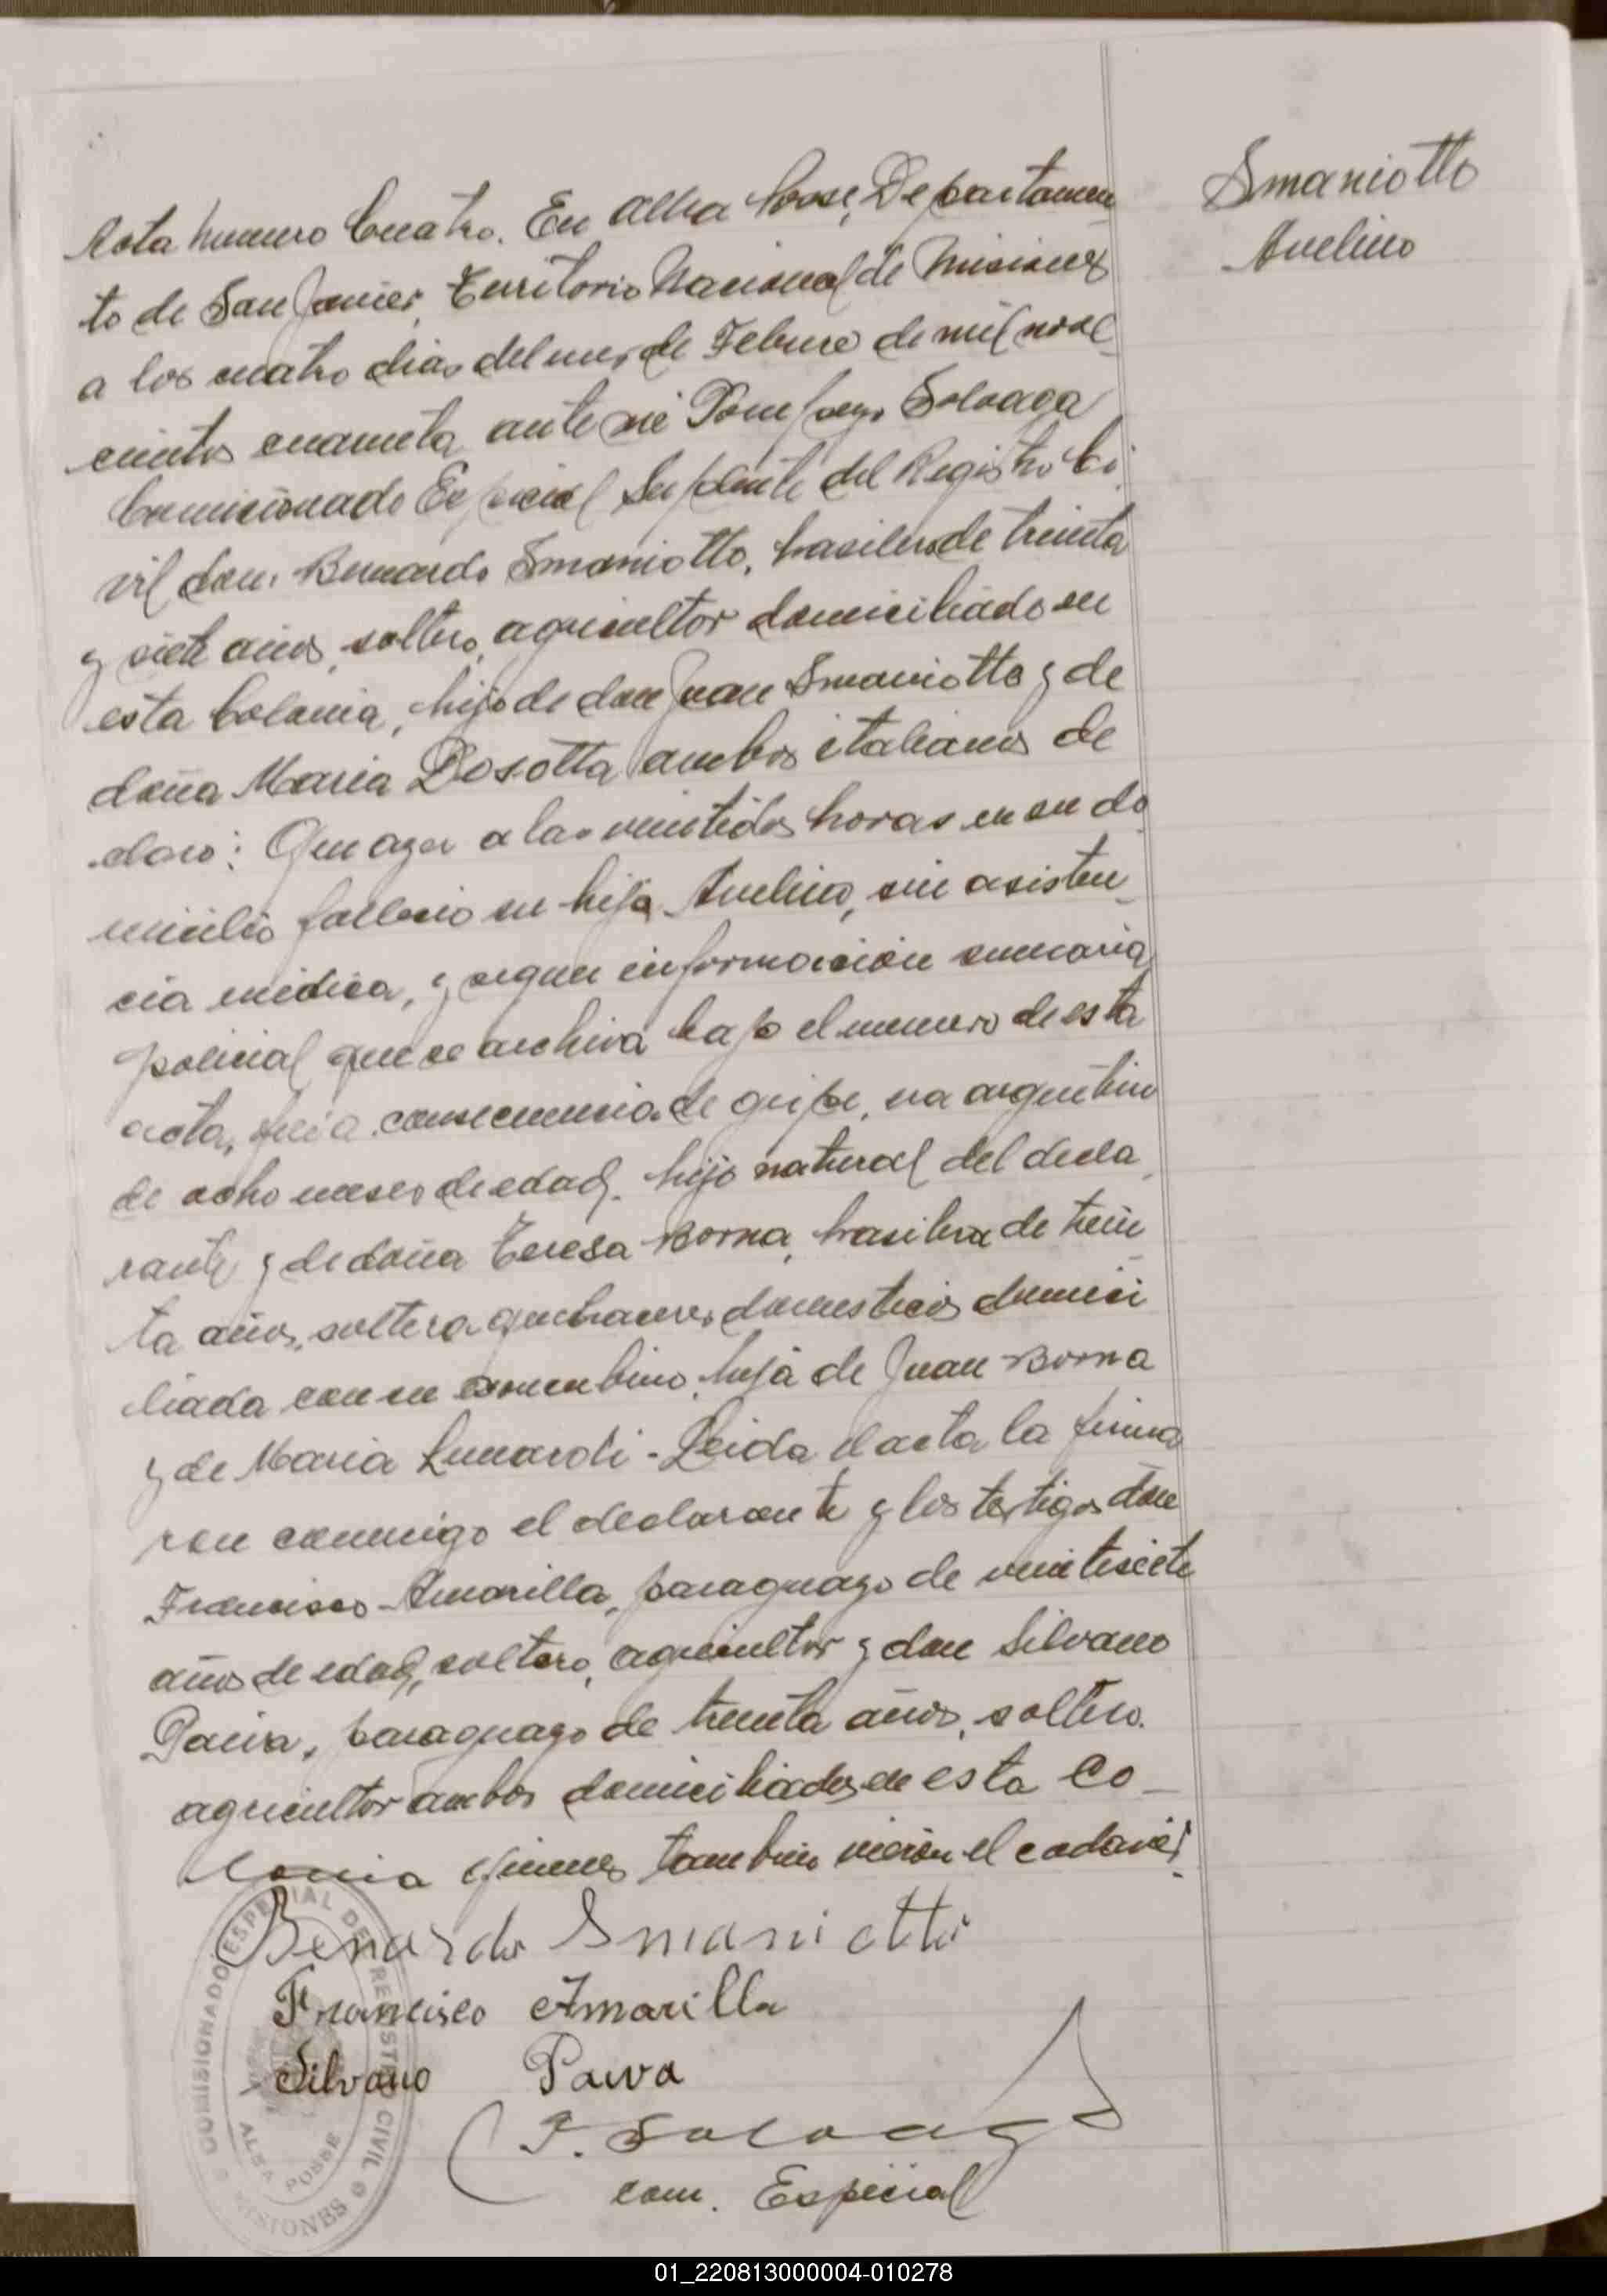 Smaniotto
Avelino
Acta numero Cuatro. En Alba Posse, Departamen
to de San Javier, Territorio Nacional de Misiones
a los cuatro dias del mes de Febrero de mil nove
cientos cuarenta, ante mi Solvaga
Comisionado Especial Suplente del Registro Ci
vil don: Bernardo Smaniotto, brasilero de treinta
y siete años, soltero, agricultor domiciliado en
esta Colonia, hijo de don Juan Smaniotto y de
doña Maria Bosotta ambos italianos de
claro: Que ayer a las veintidos horas en su do
micilio fallecio su hijo Avelino, sin asisten-
cia medica, y segun informacion sumaria
policial que se archiva bajo el numero de esta
acta, fue a consecuencia de gripe, era argentino
de ocho meses de edad, hijo natural del decla
rante y de doña Teresa Borna, brasilera de trein
ta años, soltera quehaceres domesticos domici
liada con su concubino, hija de Juan Borna
y de Maria Lunardi - Leida el acta la firma
ron conmigo el declarante y los testigos don
Francisco Amarilla, paraguayo de veintisiete
años de edad, soltero, agricultor y don Silvano
Paiva, paraguayo de treinta años, soltero.
agricultor ambos domiciliados en esta Co-
lonia quienes tambien vieron el cadaver.
Benardo Smaniotto
Francisco Amarilla
Silvano Paiva
P. Solvaga
com. Especial
COMISIONADO ESPECIAL DEL REGISTRO CIVIL
ALBA POSSE
MISIONES
01_220813000004-010278